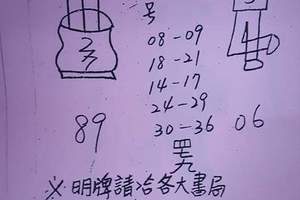 号
08-09
18-21
14-17
24-29
89
30-36
06
※明牌請洽各大書局